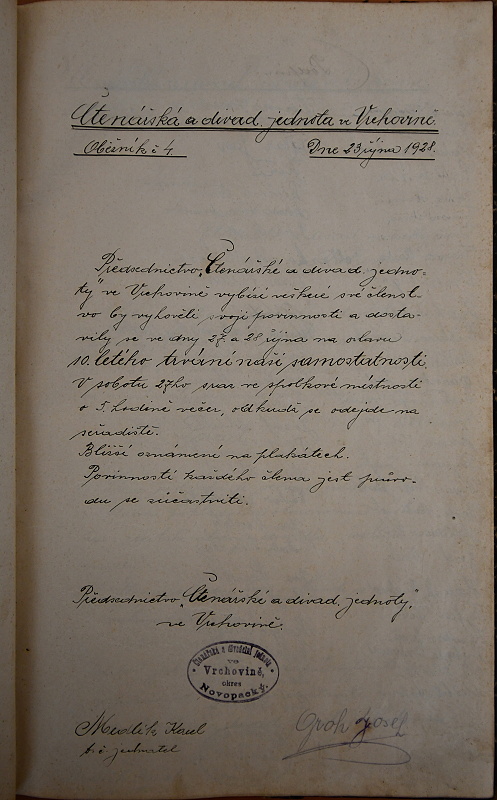 Čtenářská a divad. jednota ve Vrchovině.
Oběžník č 4.
Dne 23 října 1928.
Předsednictvo „Čtenářské a divad. jedno-
ty" ve Vrchovině vybízí veškeré své členst-
vo by vyhověli svojí povinnosti a dosta-
vily se ve dny 27 a 28 října na oslavu
10. letého trvání naší samostatnosti.
V sobotu 27ho sraz ve spolkové místnosti
o 5. hodině večer, odkudž se odejde na
seřadiště.
Bližší oznámení na plakátech.
Povinností každého člena jest průvo-
du se súčastniti.
Předsednictvo „Čtenářské a divad. jednoty",
ve Vrchovině.
Čtenářská a divadelní jednota
ve
Vrchovině,
okres
Novopacký.
Karel
Groh Josef
t. č. jednatel